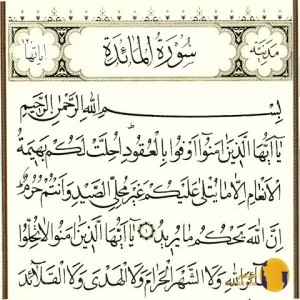 مدنية سورة المائدة آياتها ١٢٠
بسم الله الرحمن الرحيم
يا أيها الذين آمنوا أوفوا بالعقود أحلت لكم بهيمة
الأنعام إلا ما يتلى عليكم غير محلي الصيد وأنتم حرم
إن الله يحكم ما يريد ۝ يا أيها الذين آمنوا لا تحلوا
الله ولا الشهر الحرام ولا الهدي ولا القلائد